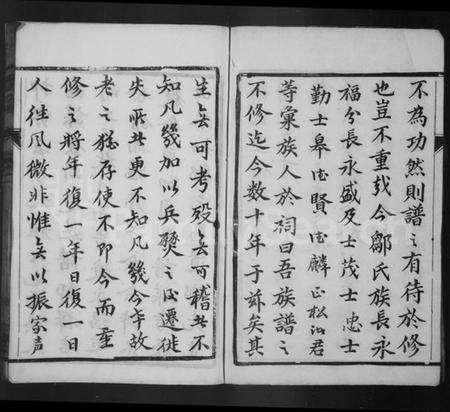 不為功然則譜之有待於修
也豈不重哉今鄒氏族長永
福分長永盛及士茂士忠士
勤士皋诗賢诗麟正松诗君
等彙族人於祠曰吾族譜之
不修迄今数十年于兹矣其
生無可考殁無可稽共不
知凡幾加以兵燹之後遷徙
失所共更不知凡幾今幸故
老之猶存使不即今而重
修之將年復一年日復一日
人往风微非惟無以振家声